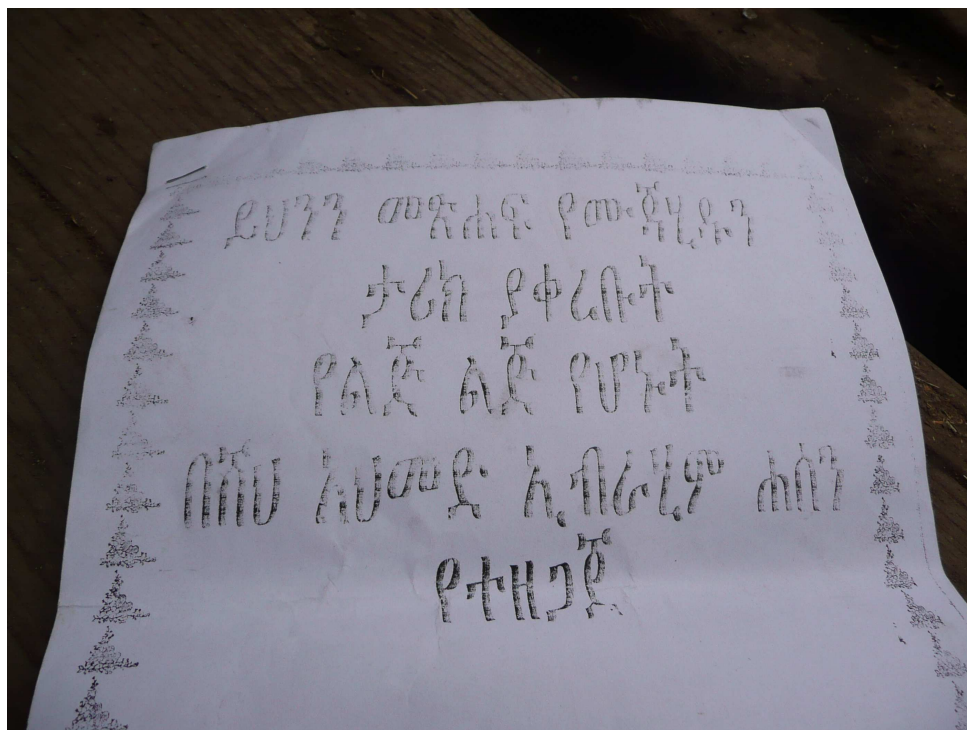 ይህንን መጽሐፍ የሙጃሂዱን
ታሪክ ያቀረቡት
የልጅ ልጅ የሆኑት
በሸህ አህመድ ኢብራሂም ሐሰን
የተዘጋጀ